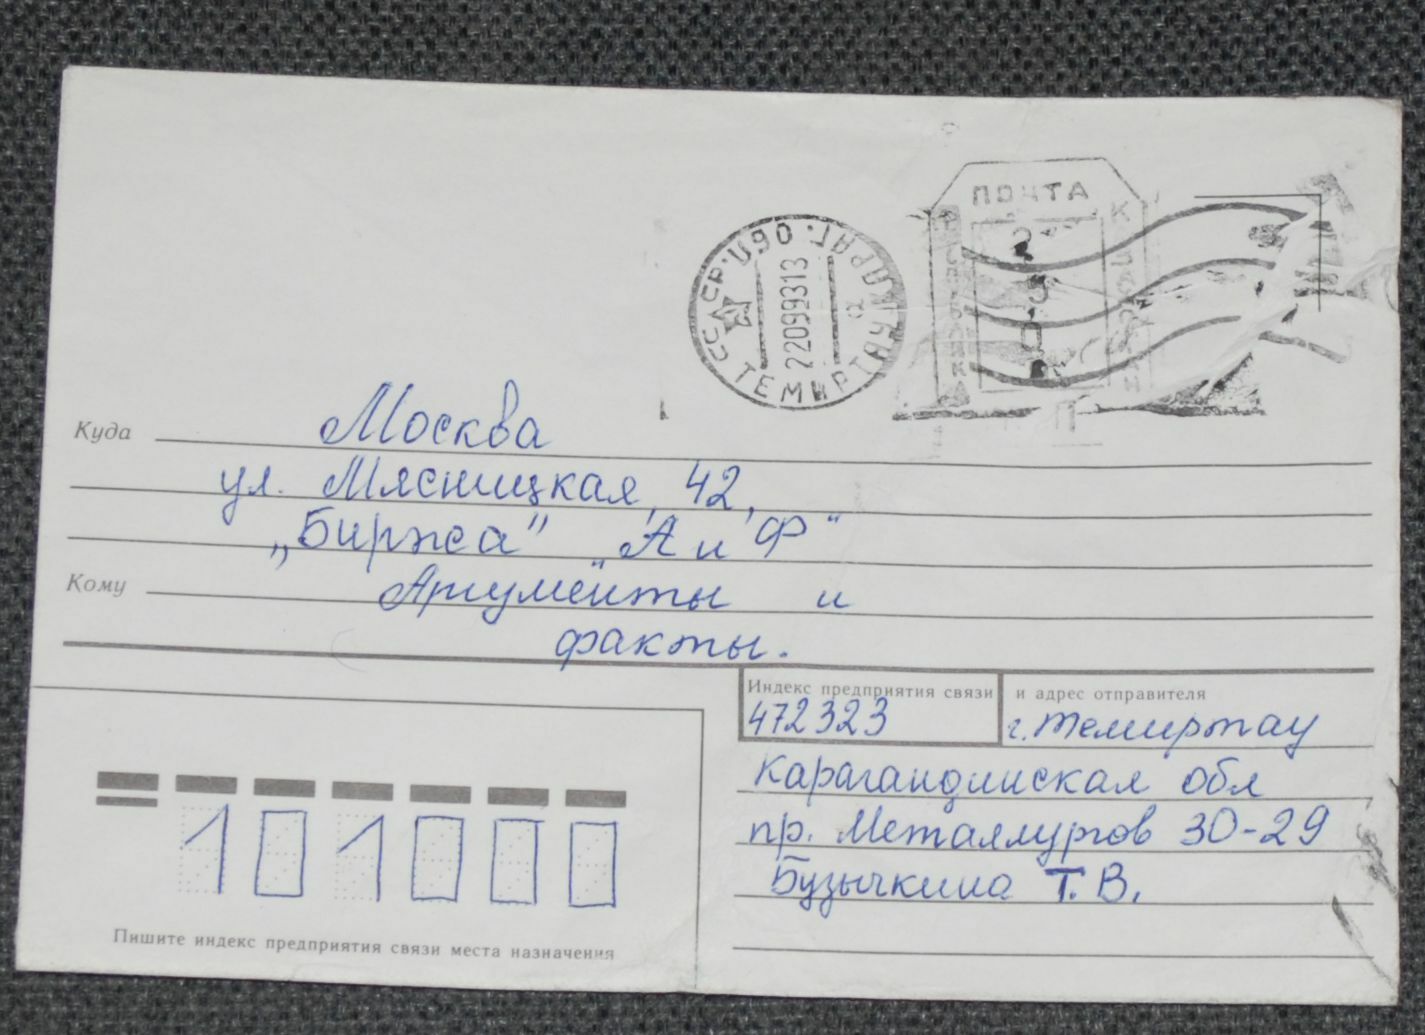 ПОЧТА
22099313
ТЕМИРТАУ
Куда Москва
ул. Мясницкая, 42,
„Биржа" „А и Ф"
Кому Аргументы и
факты.
Индекс предприятия связи и адрес отправителя
472323 г. Темиртау
Карагандинская обл
пр. Металлургов 30-29
Бузычкина Т.В.
101000
Пишите индекс предприятия связи места назначения